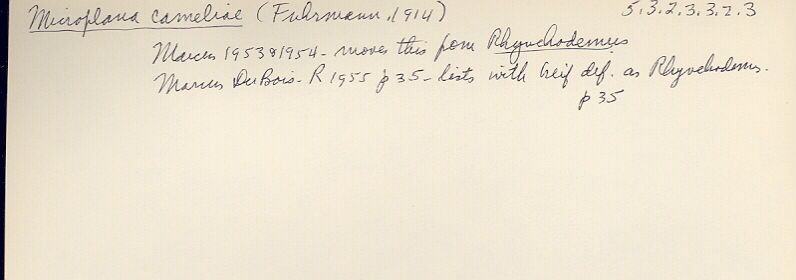 Microplana cameliae (Fuhrmann, 1914) 5.3.2.3.3.2.3
Marcus 1953 & 1954 - moves this from Rhynchodemus
Marcus DuBois-R 1955 p 35 - lists with brief def. as Rhynchodemus.
p 35